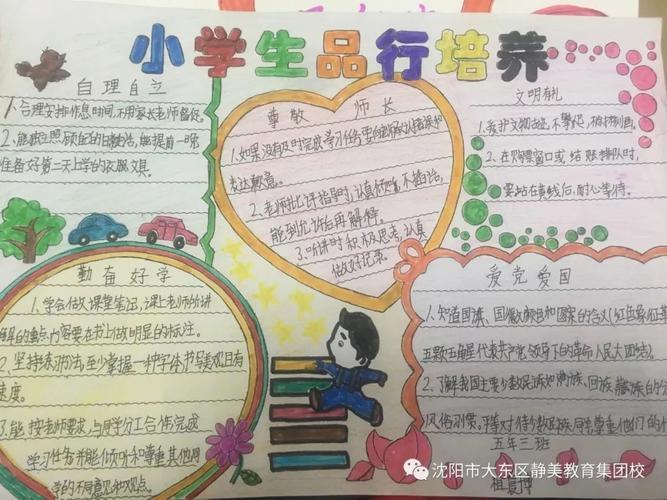 小学生品行培养
自理自立
1、合理安排作息时间,不用家长老师督促。
2、能独立照顾自己的日常生活,能提前一晚
准备好第二天上学的衣服文具。
尊敬师长
1.如果没有及时完成学习任务要向老师承认错误和
表达歉意。
2.老师批评指导时,认真倾听,不插话,
能到允许后再解释。
3.听讲时积极思考,认真
做好记录。
文明有礼
1.爱护文物古迹,不攀爬,
2.在购票窗口或结账排队时,
要站在黄线后,耐心等待。
勤奋好学
1.学会做课堂笔记,课上老师所讲
的重点内容要在书上做明显的标注。
2、坚持练习书法,至少掌握一种字体,书写美观且有
速度。
3.能按老师要求,与同学分工合作完成
学习任务并能倾听和尊重其他同
学的不同意见和观点。
爱党爱国
1.知道国旗、国徽颜色和图案的含义(红色象征革
五颗五角星代表共产党领导下的革命人民大团结).
2.了解我国主要少数民族如满族、回族、藏族的
风俗习惯。平等对待少数民族同学尊重他们的
五年三班
沈阳市大东区静美教育集团校